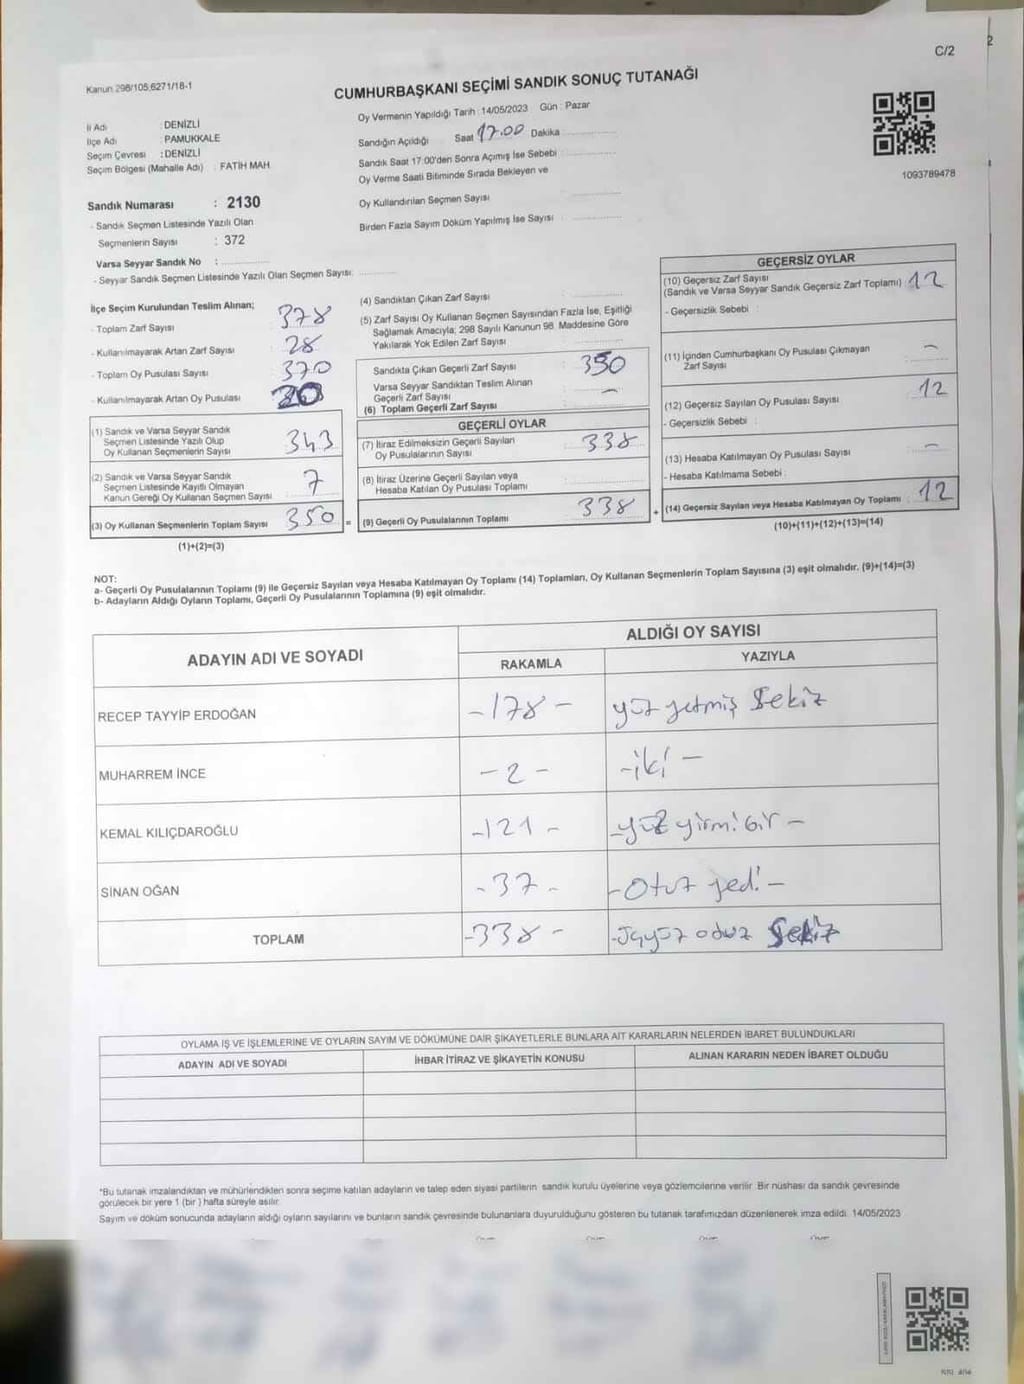 C/2
2
Kanun 298/105,6271/18-1
CUMHURBAŞKANI SEÇİMİ SANDIK SONUÇ TUTANAĞI
İl Adı : DENİZLİ
İlçe Adı : PAMUKKALE
Seçim Çevresi : DENİZLİ
Seçim Bölgesi (Mahalle Adı) : FATİH MAH
Sandık Numarası : 2130
- Sandık Seçmen Listesinde Yazılı Olan
Seçmenlerin Sayısı : 372
Varsa Seyyar Sandık No :
- Seyyar Sandık Seçmen Listesinde Yazılı Olan Seçmen Sayısı:
Oy Vermenin Yapıldığı Tarih : 14/05/2023 Gün : Pazar
Sandığın Açıldığı Saat 17.00 Dakika
Sandık Saat 17:00'den Sonra Açımış İse Sebebi :
Oy Verme Saati Bitiminde Sırada Bekleyen ve
Oy Kullandırılan Seçmen Sayısı
Birden Fazla Sayım Döküm Yapılmış İse Sayısı :
1093789478
İlçe Seçim Kurulundan Teslim Alınan;
- Toplam Zarf Sayısı : 378
- Kullanılmayarak Artan Zarf Sayısı : 28
- Toplam Oy Pusulası Sayısı : 370
- Kullanılmayarak Artan Oy Pusulası : 20
(1) Sandık ve Varsa Seyyar Sandık
Seçmen Listesinde Yazılı Olup
Oy Kullanan Seçmenlerin Sayısı 343
(2) Sandık ve Varsa Seyyar Sandık
Seçmen Listesinde Kayıtlı Olmayan
Kanun Gereği Oy Kullanan Seçmen Sayısı 7
(3) Oy Kullanan Seçmenlerin Toplam Sayısı 350 =
(1)+(2)=(3)
(4) Sandıktan Çıkan Zarf Sayısı
(5) Zarf Sayısı Oy Kullanan Seçmen Sayısından Fazla İse, Eşitliği
Sağlamak Amacıyla; 298 Sayılı Kanunun 98. Maddesine Göre
Yakılarak Yok Edilen Zarf Sayısı
Sandıkta Çıkan Geçerli Zarf Sayısı : 350
Varsa Seyyar Sandıktan Teslim Alınan
Geçerli Zarf Sayısı : -
(6) Toplam Geçerli Zarf Sayısı
GEÇERLİ OYLAR
(7) İtiraz Edilmeksizin Geçerli Sayılan
Oy Pusulalarının Sayısı : 338
(8) İtiraz Üzerine Geçerli Sayılan veya
Hesaba Katılan Oy Pusulası Toplamı :
(9) Geçerli Oy Pusulalarının Toplamı : 338 +
GEÇERSİZ OYLAR
(10) Geçersiz Zarf Sayısı
(Sandık ve Varsa Seyyar Sandık Geçersiz Zarf Toplamı) : 12
- Geçersizlik Sebebi :
(11) İçinden Cumhurbaşkanı Oy Pusulası Çıkmayan
Zarf Sayısı : -
(12) Geçersiz Sayılan Oy Pusulası Sayısı : 12
- Geçersizlik Sebebi :
(13) Hesaba Katılmayan Oy Pusulası Sayısı : -
- Hesaba Katılmama Sebebi :
(14) Geçersiz Sayılan veya Hesaba Katılmayan Oy Toplamı : 12
(10)+(11)+(12)+(13)=(14)
NOT:
a- Geçerli Oy Pusulalarının Toplamı (9) ile Geçersiz Sayılan veya Hesaba Katılmayan Oy Toplamı (14) Toplamları, Oy Kullanan Seçmenlerin Toplam Sayısına (3) eşit olmalıdır. (9)+(14)=(3)
b- Adayların Aldığı Oyların Toplamı, Geçerli Oy Pusulalarının Toplamına (9) eşit olmalıdır.
ADAYIN ADI VE SOYADI
ALDIĞI OY SAYISI
RAKAMLA
YAZIYLA
RECEP TAYYİP ERDOĞAN -178- yüz yetmiş sekiz
MUHARREM İNCE -2- -iki-
KEMAL KILIÇDAROĞLU -121- -yüz yirmi bir-
SİNAN OĞAN -37- -Otuz yedi-
TOPLAM -338- -üçyüz oduz sekiz
OYLAMA İŞ VE İŞLEMLERİNE VE OYLARIN SAYIM VE DÖKÜMÜNE DAİR ŞİKAYETLERLE BUNLARA AİT KARARLARIN NELERDEN İBARET BULUNDUKLARI
ADAYIN ADI VE SOYADI
İHBAR İTİRAZ VE ŞİKAYETİN KONUSU
ALINAN KARARIN NEDEN İBARET OLDUĞU
*Bu tutanak imzalandıktan ve mühürlendikten sonra seçime katılan adayların ve talep eden siyasi partilerin sandık kurulu üyelerine veya gözlemcilerine verilir. Bir nüshası da sandık çevresinde
görülecek bir yere 1 (bir ) hafta süreyle asılır.
Sayım ve döküm sonucunda adayların aldığı oyların sayılarını ve bunların sandık çevresinde bulunanlara duyurulduğunu gösteren bu tutanak tarafımızdan düzenlenerek imza edildi. 14/05/2023